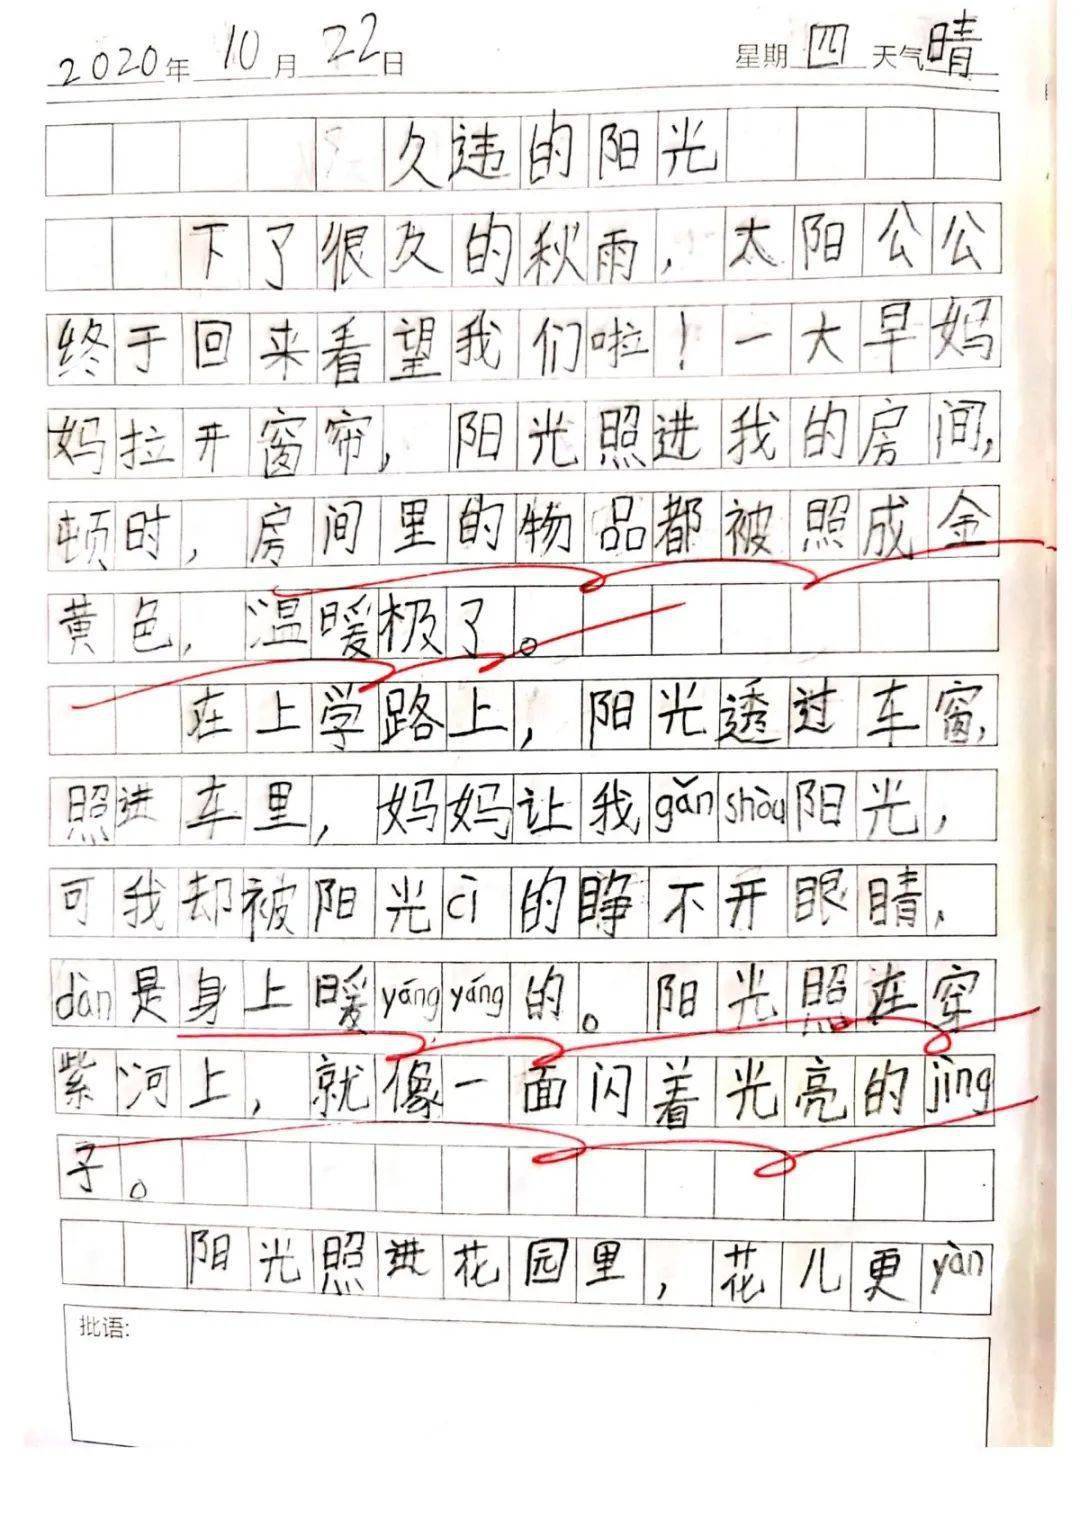 2020年 10月 22日 星期四 天气晴
久违的阳光
下了很久的秋雨，太阳公公
终于回来看望我们啦！一大早妈
妈拉开窗帘，阳光照进我的房间，
顿时，房间里的物品都被照成金
黄色，温暖极了。
在上学路上，阳光透过车窗，
照进车里，妈妈让我gǎn shòu阳光，
可我却被阳光cì的睁不开眼睛，
dàn是身上暖yáng yáng的。阳光照在穿
紫河上，就像一面闪着光亮的jìng
子。
阳光照进花园里，花儿更yàn
批语: